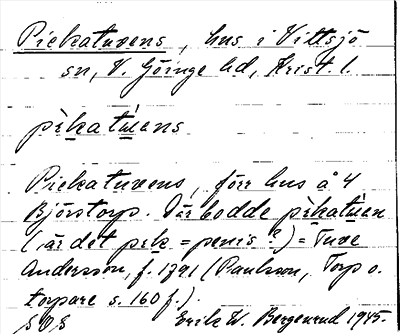 Piekatuvens, hus i Vittsjö
sn, V. Göinge hd, Krist. l.
pìkatúens
Piekatuvens, förr hus å 4
Björstorp. Där bodde pìkatúen
(är det pik = penis?) = Tuve
Andersson, f. 1791 (Paulsson, Torp o.
torpare s. 160 f.).
SOS Erik W. Bergenrud 1945.